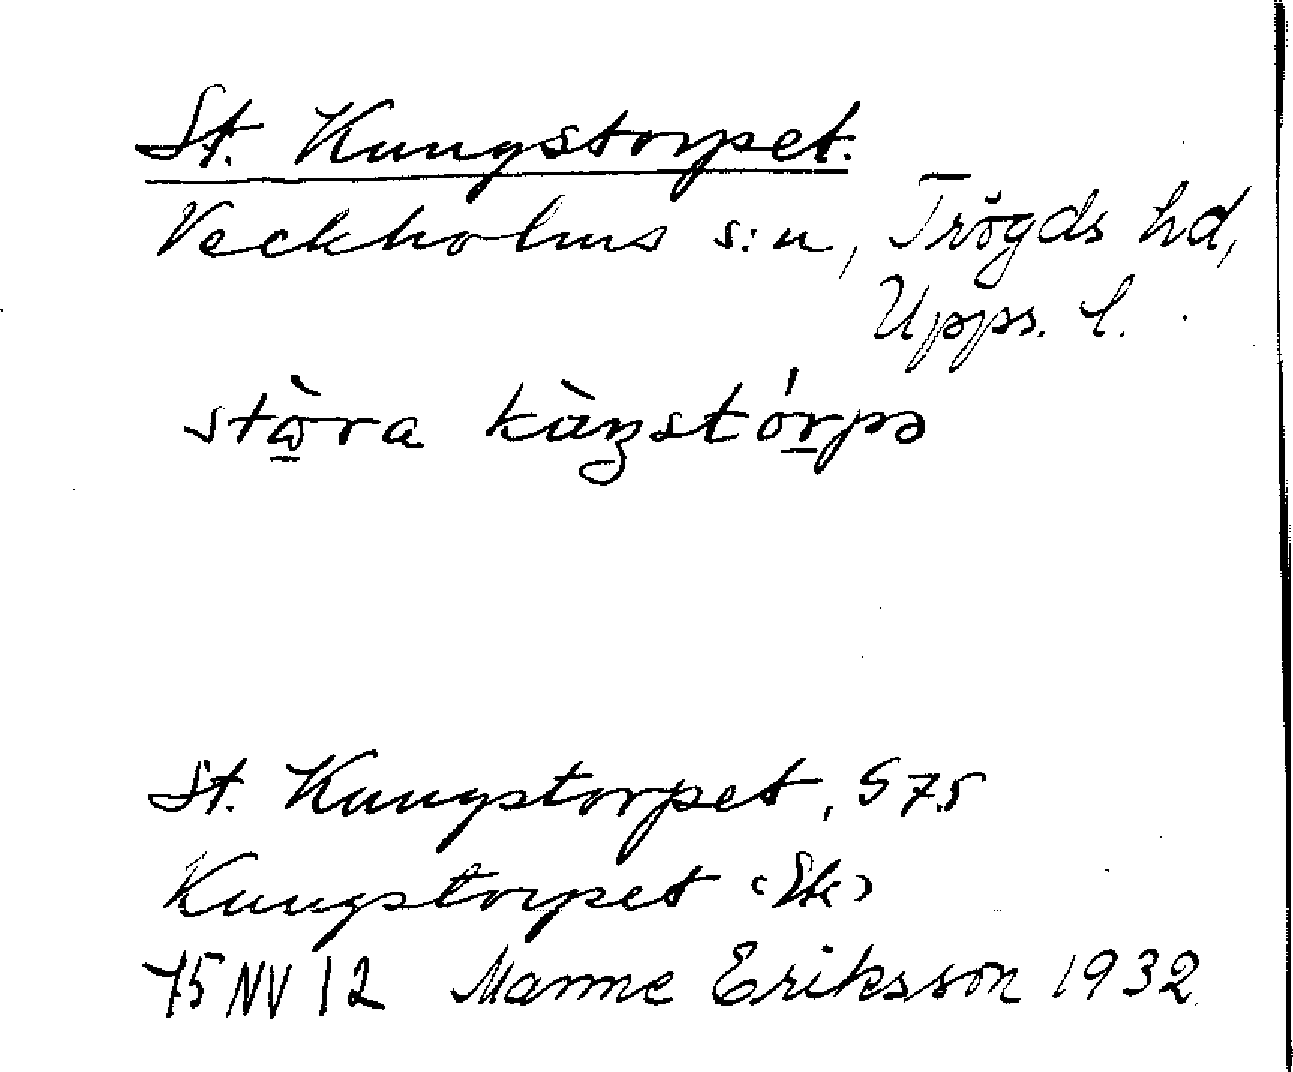 St. Kungstorpet.
Veckholms s:n, Trögds hd,
Upps. l.
stòra kàŋstórpə
St. Kungstorpet, S 75
Kungstorpet (Ek)
75 NV 12 Manne Eriksson 1932